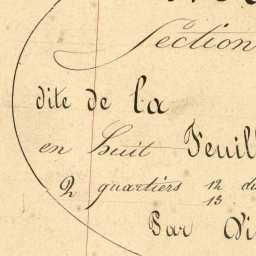 Section
dite de la
en huit Feuill
2 quartiers 12 d
13
Par